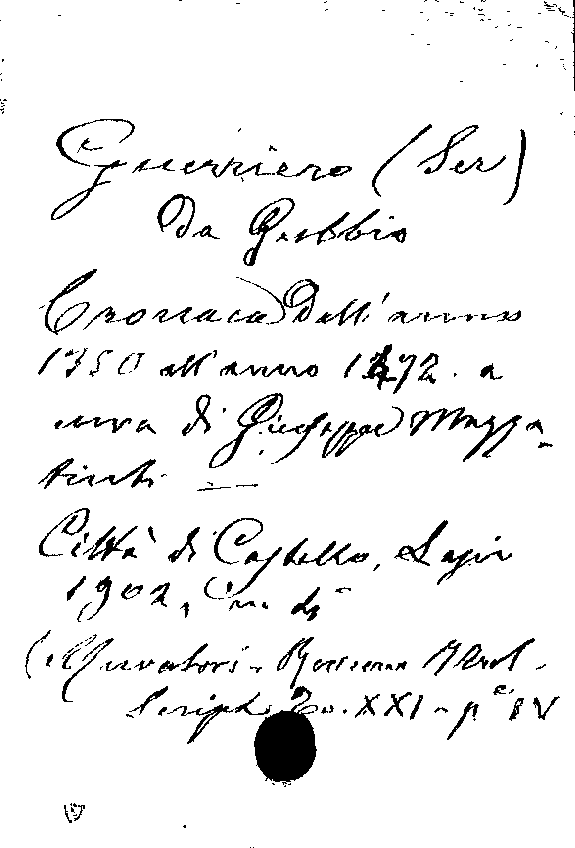 Guerriero (Ser)
Da Gubbio
Cronaca Dall'anno
1350 all'anno 1472. a
cura di Giuseppe Mazza-
tinti
Città di Castello, Lapi
1902, in
(Muratori - Rerum Ital.
Script. To. XXI - p.e IV